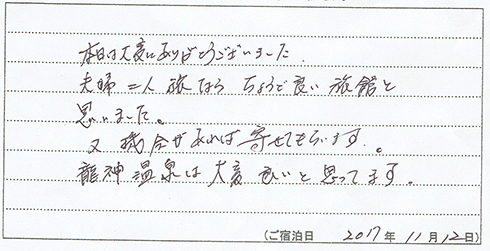 本日は大変ありがとうございました.
夫婦二人旅なら ちょうど良い旅館と
思いました。
又機会があれば寄せてもらいます。
龍神温泉は大変良いと思ってます。
(ご宿泊日 2017年 11月 12日)